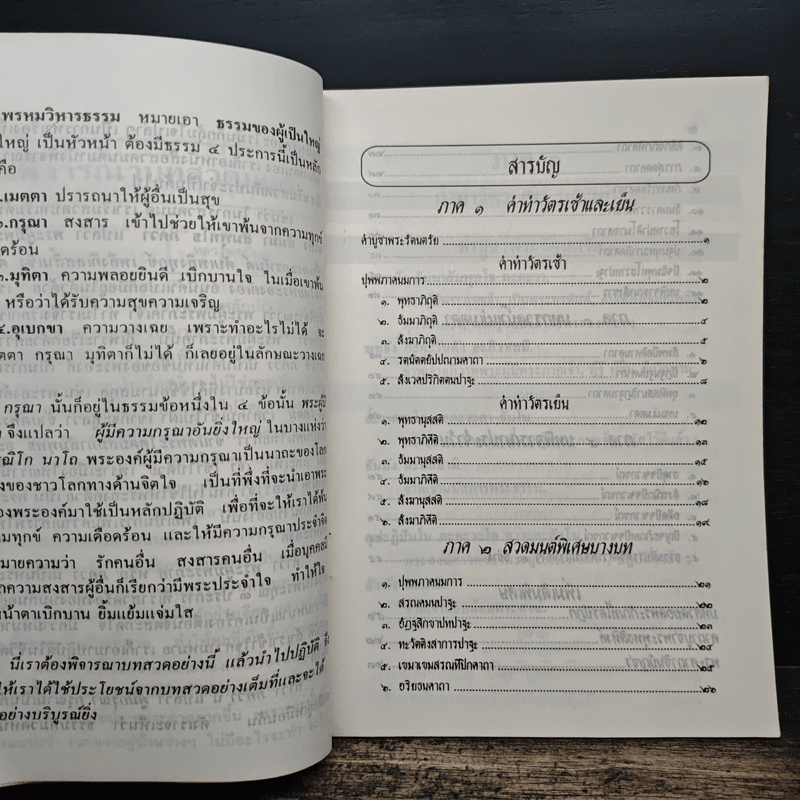 พรหมวิหารธรรม หมายเอา ธรรมของผู้เป็นใหญ่
ใหญ่ เป็นหัวหน้า ต้องมีธรรม ๔ ประการนี้เป็นหลัก
คือ
.เมตตา ปรารถนาให้ผู้อื่นเป็นสุข
๒.กรุณา สงสาร เข้าไปช่วยให้เขาพ้นจากความทุกข์
ดร้อน
๓.มุทิตา ความพลอยยินดี เบิกบานใจ ในเมื่อเขาพ้น
หรือว่าได้รับความสุขความเจริญ
๔.อุเบกขา ความวางเฉย เพราะทำอะไรไม่ได้ จะ
ตตา กรุณา มุทิตาก็ไม่ได้ ก็เลยอยู่ในลักษณะวางเฉย
กรุณา นั้นก็อยู่ในธรรมข้อหนึ่งใน ๔ ข้อนั้น พระผู้มี
จึงแปลว่า ผู้มีความกรุณาอันยิ่งใหญ่ ในบางแห่งว่า
ณิโก นาโถ พระองค์ผู้มีความกรุณาเป็นนาถะของโลก
ของชาวโลกทางด้านจิตใจ เป็นที่พึ่งที่จะนำเอาพระ
องพระองค์มาใช้เป็นหลักปฏิบัติ เพื่อที่จะให้เราได้พ้น
มทุกข์ ความเดือดร้อน และให้มีความกรุณาประจำจิต
มายความว่า รักคนอื่น สงสารคนอื่น เมื่อบุคคลมี
กความสงสารผู้อื่นก็เรียกว่ามีพระประจำใจ ทำให้ใจ
น้าตาเบิกบาน ยิ้มแย้มแจ่มใส
นี่เราต้องพิจารณาบทสวดอย่างนี้ แล้วนำไปปฏิบัติ จึง
ให้เราได้ใช้ประโยชน์จากบทสวดอย่างเต็มที่และจะได้
อย่างบริบูรณ์ยิ่ง
สารบัญ
ภาค ๑ คำทำวัตรเช้าและเย็น
คำบูชาพระรัตนตรัย ๑
คำทำวัตรเช้า
ปุพพภาคนมการ ๒
๑. พุทธาภิถุติ ๒
๒. ธัมมาภิถุติ ๔
๓. สังฆาภิถุติ ๕
๔. รตนัตตย์ปปณามคาถา ๖
๕. สังเวคปริกิตตนปาฐะ ๘
คำทำวัตรเย็น
๑. พุทธานุสสติ ๑๒
๒. พุทธาภิคีติ ๑๓
๓. ธัมมานุสสติ ๑๕
๔. ธัมมาภิคีติ ๑๖
๕. สังฆานุสสติ ๑๘
๖. สังฆาภิคีติ ๑๙
ภาค ๒ สวดมนต์พิเศษบางบท
๑. ปุพพภาคนมการ ๒๑
๒. สรณคมนปาฐะ ๒๒
๓. อัฏฐสิกขาปทปาฐะ ๒๓
๔. ทะวัตติงสาการปาฐะ ๒๔
๕. เขมาเขมสรณทีปิกคาถา ๒๕
๖. อริยธนคาถา ๒๖